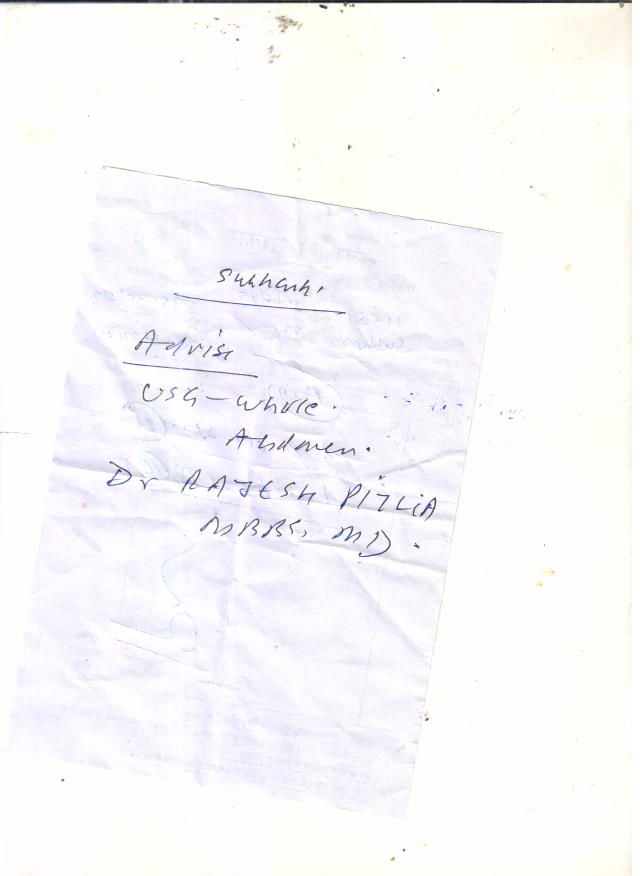 Subhash.
Advise
USG - whole.
Abdomen.
Dr RAJESH
MBBS, MD.